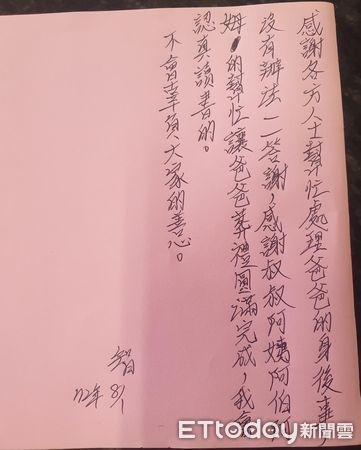 感謝各方人士幫忙處理爸爸的身後事，
沒有辦法一一答謝，感謝叔叔阿姨阿伯阿
姆的幫忙讓爸爸葬禮圓滿完成，我會
認真讀書的。
不會辜負大家的善心。
智
112年 8/1
ETtoday新聞雲